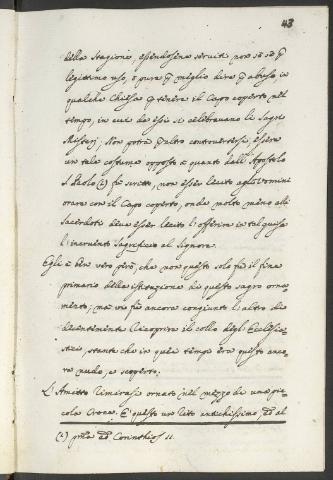 43
della Stagione, essendosene serviti non sò se p
legittimo uso, o pure p meglio dire p abuso, in
qualche Chiesa p tenere il Capo coperto nel
tempo, in cui da essi si celebravano li Sagri
Misterj; Non potrà p altro controvertersi, essere
un tale costume opposto a quanto dall'Apostolo
S. Paolo (1) fù scritto, non esser lecito agli Uomini
orare con il Capo coperto, onde molto meno alli
Sacerdoti deve esser lecito l'offerire in tal guisa
l'incruento Sagrificio al Signore.
Egli è ben vero però, che non questo solo fu il fine
primario della istituzione di questo sagro orna=
mento; ma vi fù ancora congiunto l'altro di
decentemente ricoprire il collo degli Ecclesia=
stici, stante che in quei tempi era questo anco=
ra nudo, e scoperto.
L'Amitto rimirasi ornato nel mezzo da una pic=
cola Croce. E' questo un rito antichissimo, ed al
(1) pma ad Corinthios 11.